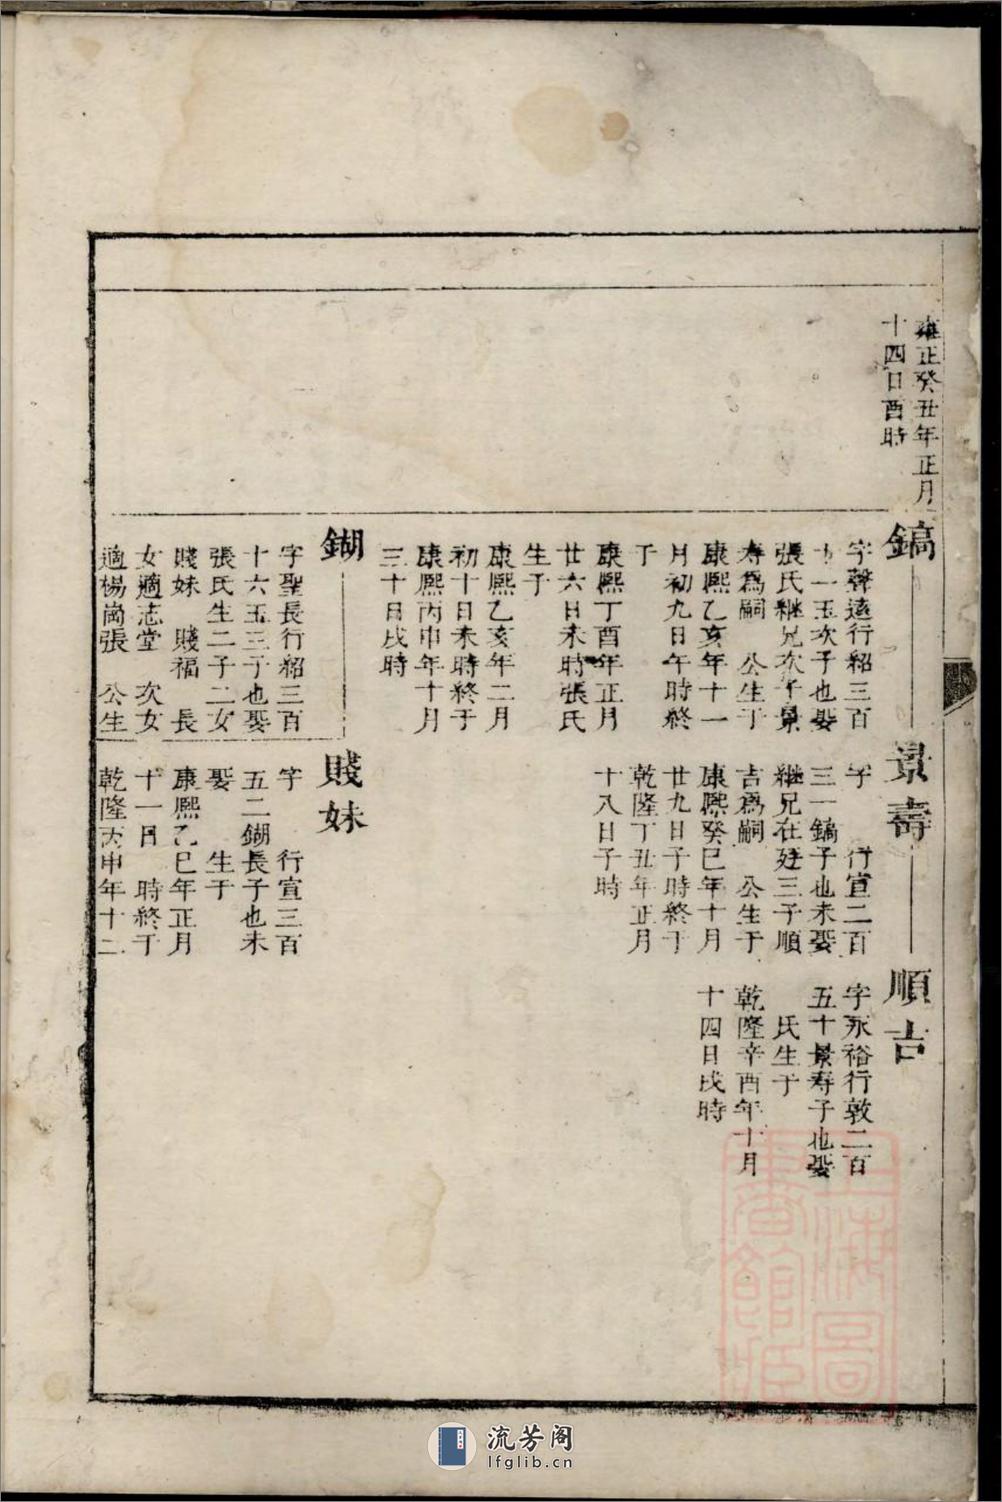 雍正癸丑年正月
十四日酉時
鎬
字聲遠行紹三百
十一玉次子也娶
張氏継兄次子景
寿爲嗣　公生于
康熙乙亥年十一
月初九日午時終
于
康熙丁酉年正月
廿六日未時張氏
生于
康熙乙亥年二月
初十日未時終于
康熙丙申年十月
三十日戌時
景壽
字　　行宣二百
三一鎬子也未娶
継兄在廷三子順
吉爲嗣　公生于
康熙癸巳年十月
廿九日子時終于
乾隆丁丑年正月
十八日子時
順吉
字永裕行敦二百
五十景寿子也娶
　氏生于
乾隆辛酉年十月
十四日戌時
鍸
字聖長行紹三百
十六玉三子也娶
張氏生二子二女
賤妹　賤福　長
女適志堂　次女
適楊崗張　公生
賤妹
字　　行宣三百
五二鍸長子也未
娶　　生于
康熙乙巳年正月
十一日　時終于
乾隆丙申年十二
上海圖
書館藏
流芳阁
lfglib.cn